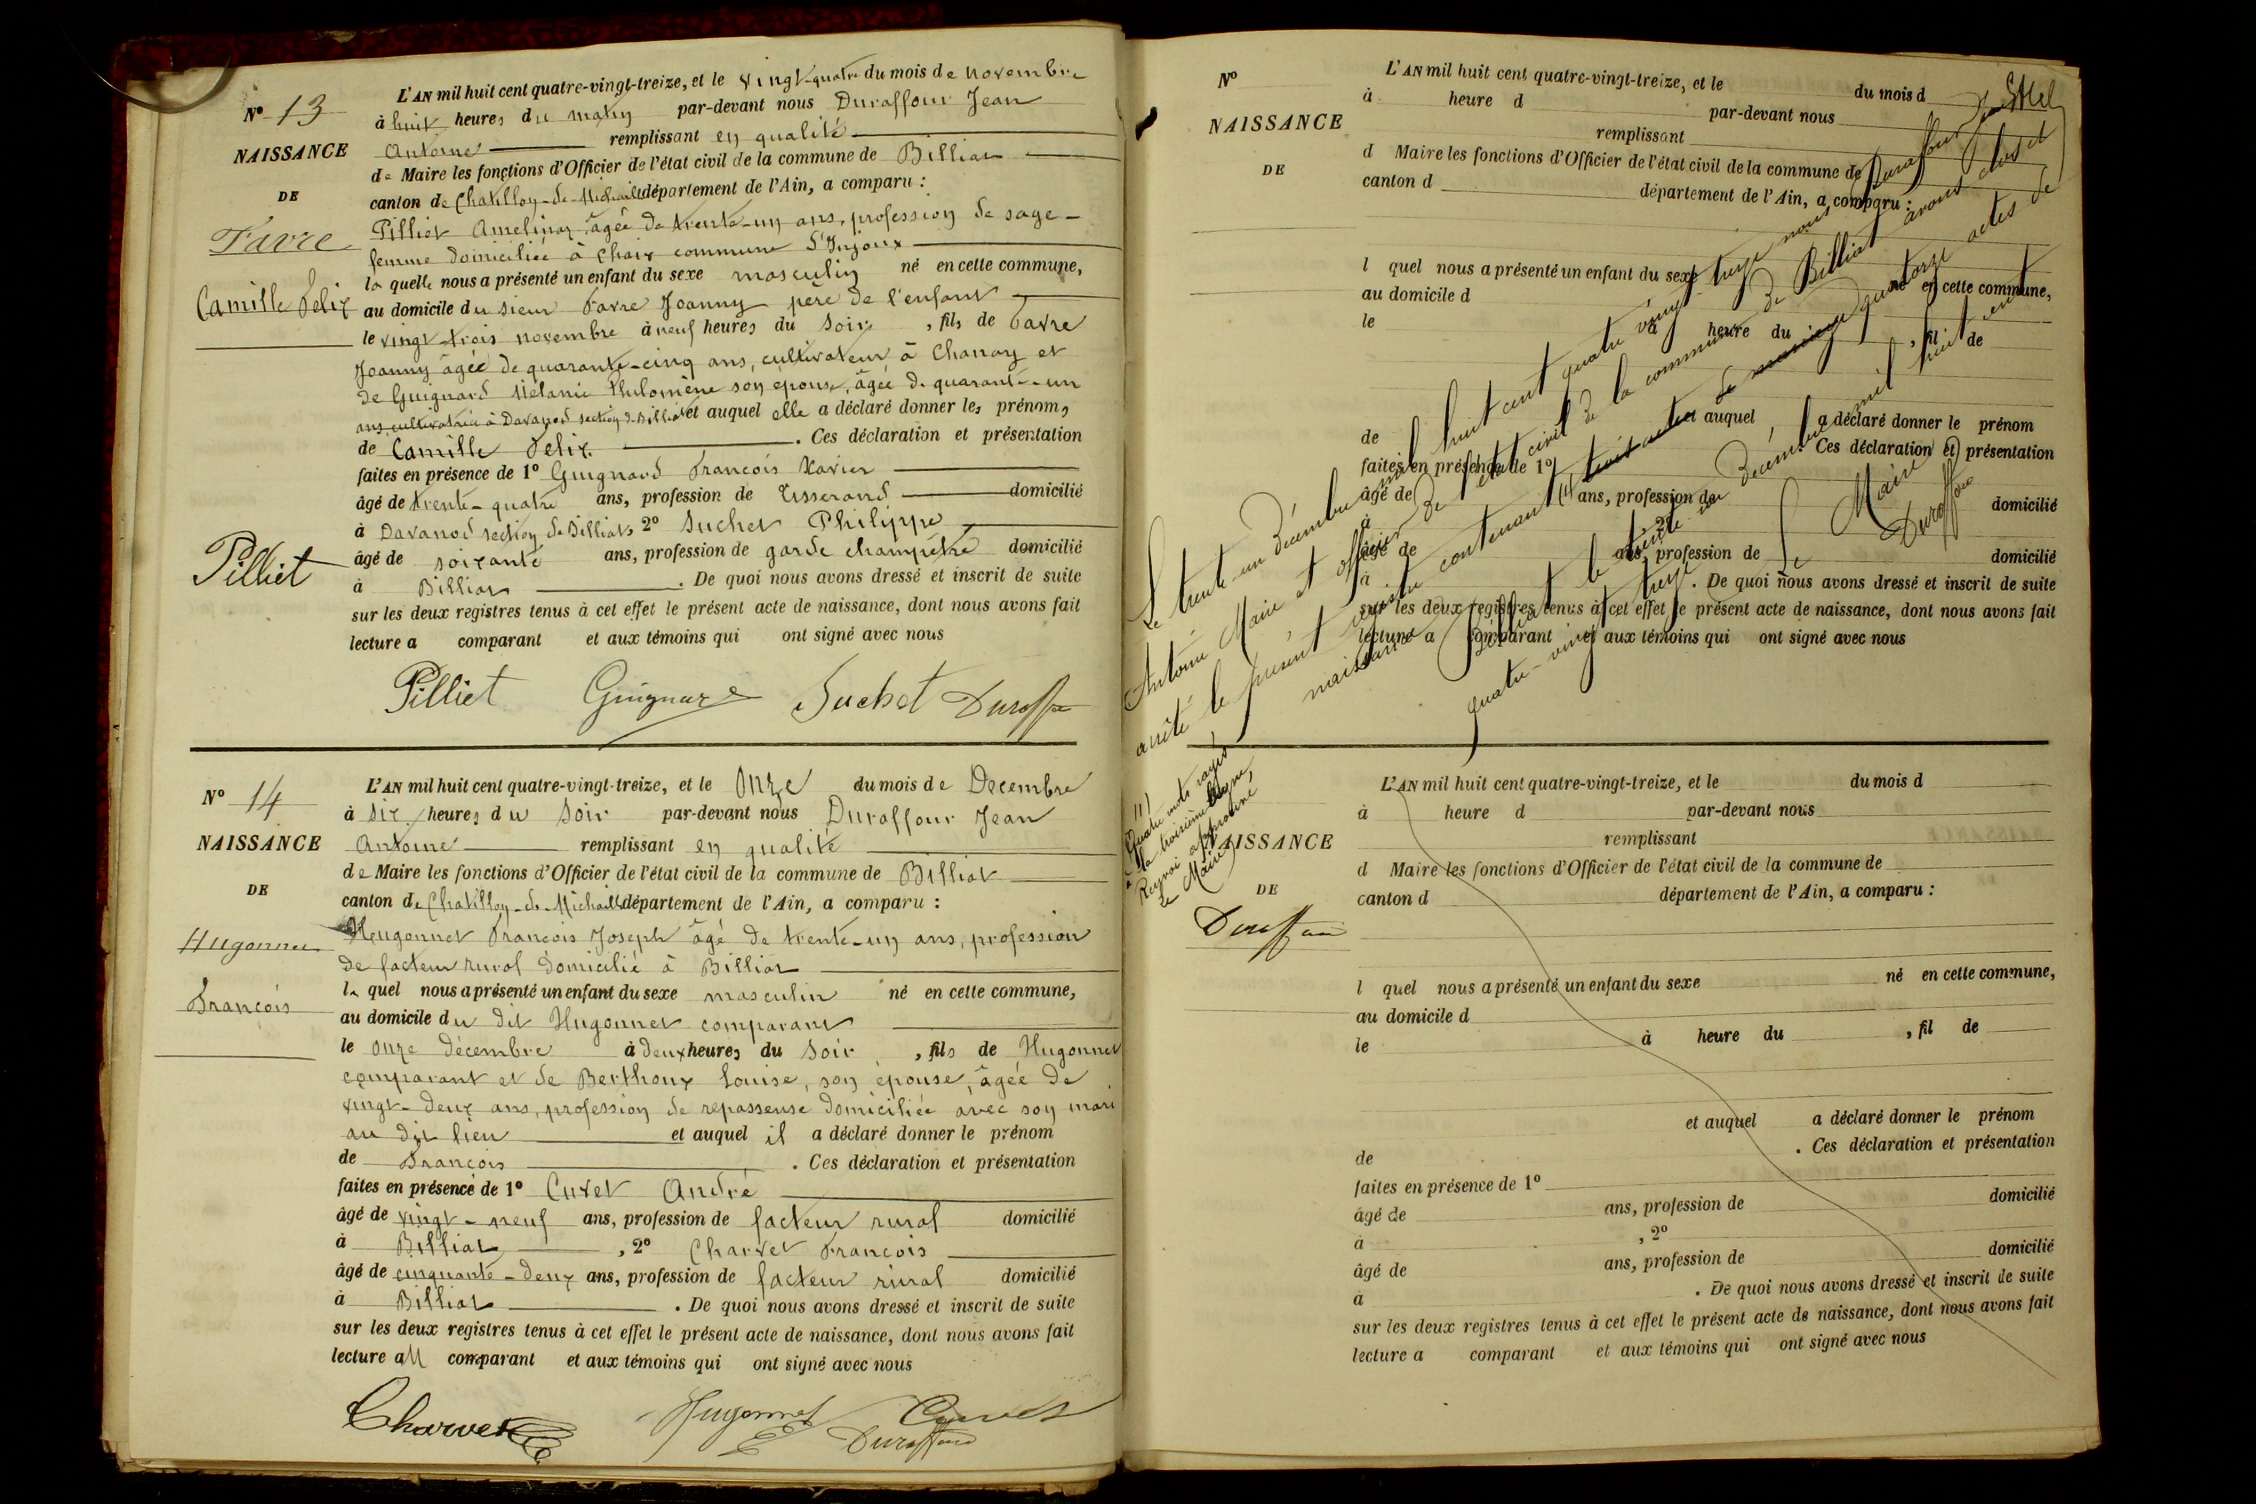 L'AN mil huit cent quatre-vingt-treize, et le vingt-quatre du mois de novembre
à huit heures du matin par-devant nous Duraffour Jean
Antoine remplissant en qualité
de Maire les fonctions d'Officier de l'état civil de la commune de Billiat
canton de Chatillon-de-Michaille département de l'Ain, a comparu :
Pilliet Amelina, âgée de trente-un ans, profession de sage-
femme domiciliée à Chaix commune d'Injoux
la quelle nous a présenté un enfant du sexe masculin né en cette commune,
au domicile du sieur Favre Joanny père de l'enfant
le vingt-trois novembre à neuf heures du soir, fils de Favre
Joanny âgée de quarante-cinq ans, cultivateur à Chanay et
de Guignard Mélanie Philomène son épouse, âgée de quarante-un
ans cultivatrice à Davanod section de Billiat et auquel elle a déclaré donner les prénoms
de Camille Felix. Ces déclaration et présentation
faites en présence de 1º Guignard François Xavier
âgé de trente-quatre ans, profession de Tisserand domicilié
à Davanod section de Billiat, 2º Suchet Philippe
âgé de soixante ans, profession de garde champêtre domicilié
à Billiat. De quoi nous avons dressé et inscrit de suite
sur les deux registres tenus à cet effet le présent acte de naissance, dont nous avons fait
lecture a comparant et aux témoins qui ont signé avec nous
Pilliet Guignard Suchet Duraffour
Nº 13
NAISSANCE
DE
Favre
Camille Felix
Pilliet
Nº 14
NAISSANCE
DE
Hugonnet
François
L'AN mil huit cent quatre-vingt-treize, et le Onze du mois de Decembre
à six heures du soir par-devant nous Duraffour Jean
Antoine remplissant en qualité
de Maire les fonctions d'Officier de l'état civil de la commune de Billiat
canton de Chatillon-de-Michaille département de l'Ain, a comparu :
Hugonnet François Joseph âgé de trente-un ans, profession
de facteur rural domicilié à Billiat
le quel nous a présenté un enfant du sexe masculin né en cette commune,
au domicile du dit Hugonnet comparant
le onze décembre à deux heures du soir, fils de Hugonnet
comparant et de Berthoux Louise, son épouse, âgée de
vingt-deux ans, profession de repasseuse domiciliée avec son mari
au dit lieu et auquel il a déclaré donner le prénom
de François. Ces déclaration et présentation
faites en présence de 1º Cuvet André
âgé de vingt-neuf ans, profession de facteur rural domicilié
à Billiat, 2º Charvet François
âgé de cinquante-deux ans, profession de facteur rural domicilié
à Billiat. De quoi nous avons dressé et inscrit de suite
sur les deux registres tenus à cet effet le présent acte de naissance, dont nous avons fait
lecture au comparant et aux témoins qui ont signé avec nous
Charvet Hugonnet Cuvet
Duraffour
Nº
NAISSANCE
DE
L'AN mil huit cent quatre-vingt-treize, et le du mois d
à heure d par-devant nous
remplissant
d Maire les fonctions d'Officier de l'état civil de la commune de
canton d département de l'Ain, a comparu :
l quel nous a présenté un enfant du sexe né en cette commune,
au domicile d
le à heure du , fil de
et auquel a déclaré donner le prénom
de . Ces déclaration et présentation
faites en présence de 1º
âgé de ans, profession de domicilié
à , 2º
âgé de ans, profession de domicilié
à . De quoi nous avons dressé et inscrit de suite
sur les deux registres tenus à cet effet le présent acte de naissance, dont nous avons fait
lecture a comparant et aux témoins qui ont signé avec nous
Le trente-un décembre mil huit cent quatre vingt-treize nous Duraffour Jean
Antoine Maire et officier de l'état civil de la commune de Billiat avons clos et
arrêté le présent registre contenant (1) huit actes de mariage quatorze actes de
naissance
Billiat le trente un décembre mil huit cent
quatre-vingt treize
Le Maire
Duraffour
(1)
Quatre mots rayés
à la troisième ligne,
Renvoi approuvé
Le Maire
Duraffour
NAISSANCE
DE
L'AN mil huit cent quatre-vingt-treize, et le du mois d
à heure d par-devant nous
remplissant
d Maire les fonctions d'Officier de l'état civil de la commune de
canton d département de l'Ain, a comparu :
l quel nous a présenté un enfant du sexe né en cette commune,
au domicile d
le à heure du , fil de
et auquel a déclaré donner le prénom
de . Ces déclaration et présentation
faites en présence de 1º
âgé de ans, profession de domicilié
à , 2º
âgé de ans, profession de domicilié
à . De quoi nous avons dressé et inscrit de suite
sur les deux registres tenus à cet effet le présent acte de naissance, dont nous avons fait
lecture a comparant et aux témoins qui ont signé avec nous